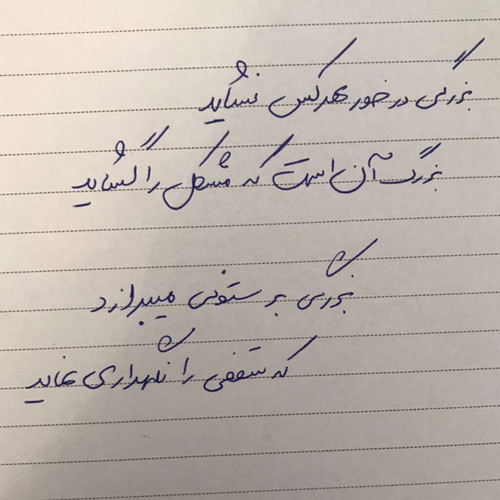 بزرگی در خور هر کس نشاید
بزرگ آن است که مشکل را گشاید
بزرگی بر ستونی میبرازد
که سقفی را نگهداری نماید